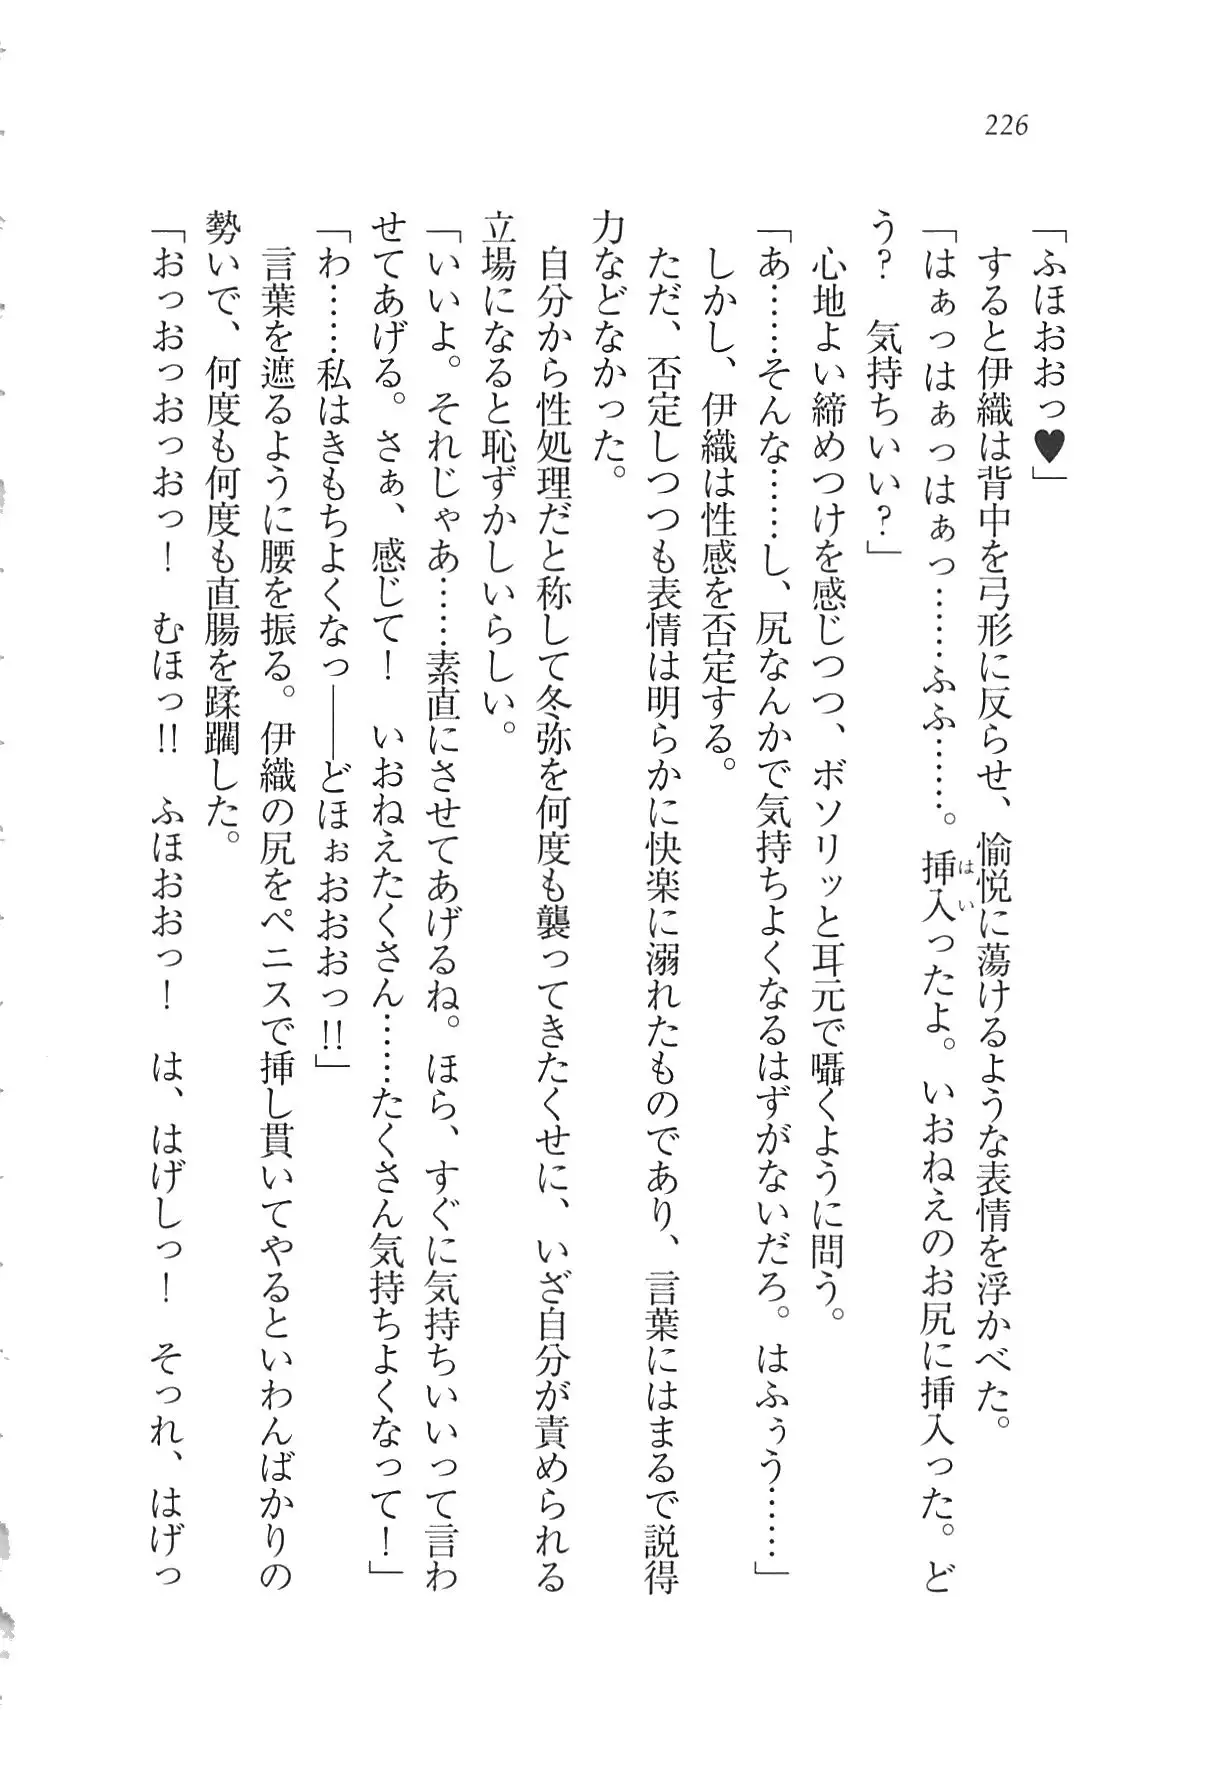 226
「ふほおおっ♥」
　すると伊織は背中を弓形に反らせ、愉悦に蕩けるような表情を浮かべた。
「はぁっはぁっはぁっ……ふふ……。挿入ったよ。いおねえのお尻に挿入った。ど
はい
う？　気持ちいい？」
　心地よい締めつけを感じつつ、ボソリッと耳元で囁くように問う。
「あ……そんな……し、尻なんかで気持ちよくなるはずがないだろ。はふぅう……」
　しかし、伊織は性感を否定する。
　ただ、否定しつつも表情は明らかに快楽に溺れたものであり、言葉にはまるで説得
力などなかった。
　自分から性処理だと称して冬弥を何度も襲ってきたくせに、いざ自分が責められる
立場になると恥ずかしいらしい。
「いいよ。それじゃあ……素直にさせてあげるね。ほら、すぐに気持ちいいって言わ
せてあげる。さぁ、感じて！　いおねえたくさん……たくさん気持ちよくなって！」
「わ……私はきもちよくなっ――どほぉおおおっ!!」
　言葉を遮るように腰を振る。伊織の尻をペニスで挿し貫いてやるといわんばかりの
勢いで、何度も何度も直腸を蹂躙した。
「おっおっおっおっ！　むほっ!!　ふほおおっ！　は、はげしっ！　そっれ、はげっ